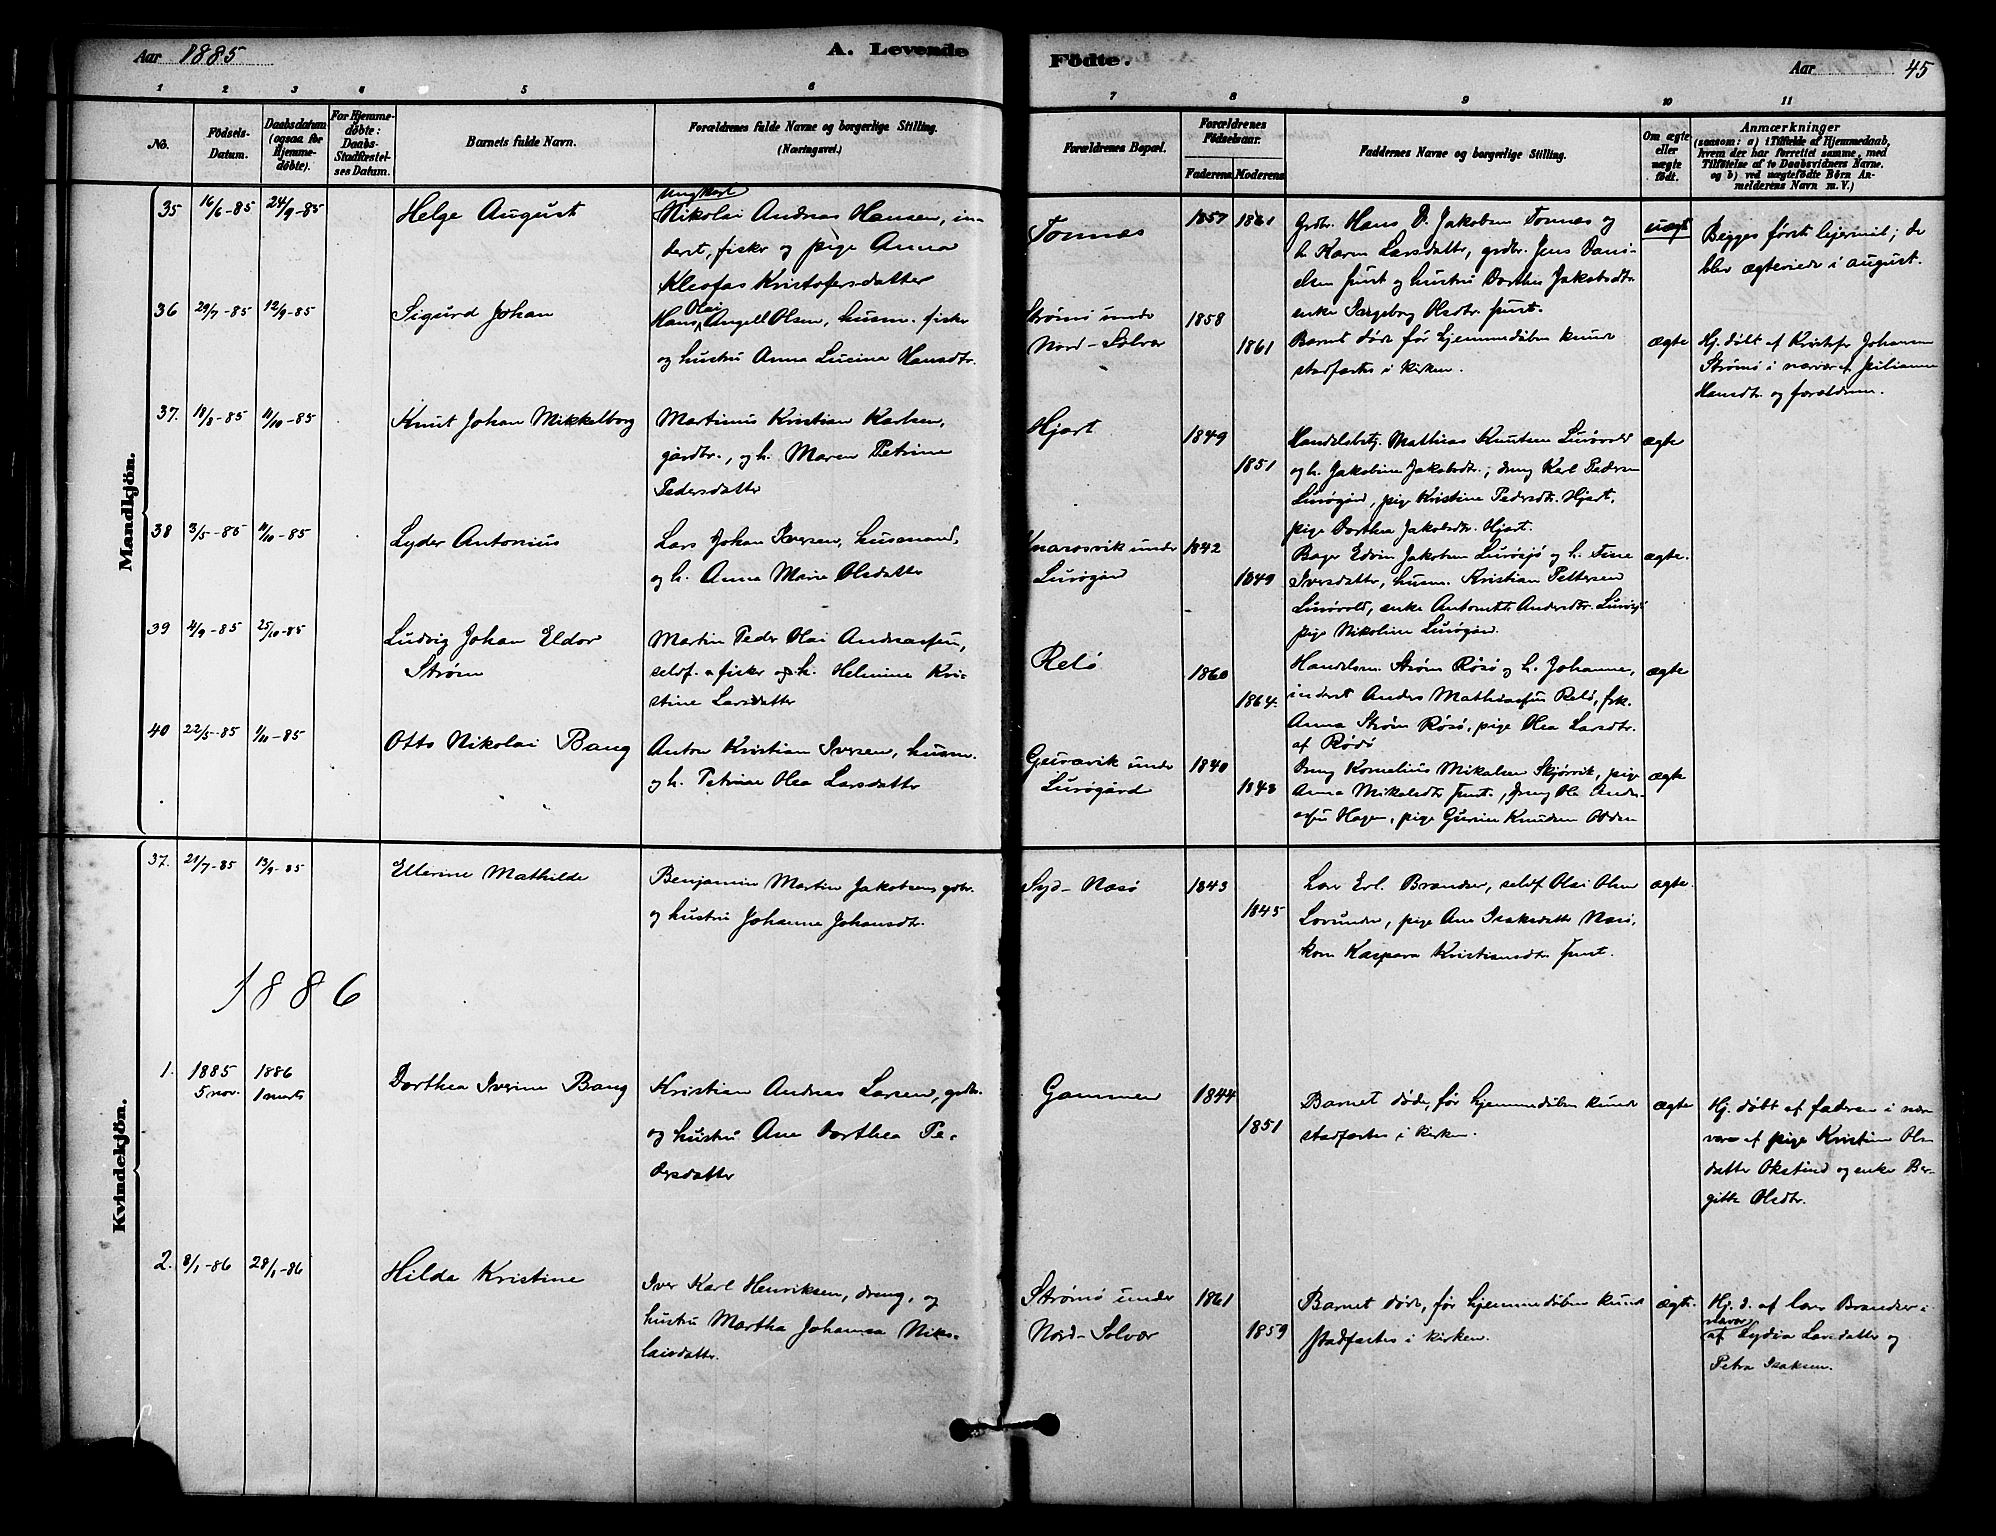 Aar 1885
A. Levende
Födte.
Aar
45
1 2 3 4 5 6 7 8 9 10 11
No.
Födsels-
Datum.
Daabsdatum
(ogsaa for
Hjemme-
döbte).
For Hjemme-
döbte:
Daabs-
Stadfæstel-
ses Datum.
Barnets fulde Navn.
Forældrenes fulde Navne og borgerlige Stilling.
(Næringsvei.)
Forældrenes Bopæl.
Forældrenes
Födselsaar.
Faderens Moderens
Faddernes Navne og borgerlige Stilling.
Om ægte
eller
uægte
födt.
Anmærkninger
(saasom: a) i Tilfælde af Hjemmedaab,
hvem der har forrettet samme, med
Tilföielse af to Daabsvidners Navne.
og b) ved uægtefödte Börn An-
melderens Navn m. V.)
Mandkjön.
35 16/6-85 24/9-85
Helge August
Ungkarl
Nikolai Andreas Hansen, in-
derst, fisker og pige Anna
Kleofas Kristofersdatter
Tonnæs
1857 1861
Grdbr. Hans D. Jakobsen Tonnæs og
h. Karen Larsdatter, grdbr. Jens Dani-
elsen smst og hustru Dorthea Jakobsdtr.
enke Ingeborg Olsdtr. smst.
uægt
Begges første leiermål; de
blev ægteviede i august.
36 29/7-85 12/9-85
Sigurd Johan
Olai
Hans Angell Olsen, husm. fisker
og hustru Anna Lucina Hansdtr.
Strømø under
Nord-Solvær
1858
1861
Barnet døde før hjemmedåben kunde
stadfæstes i kirken.
ægte
Hj. døbt af Kristofer Johansen
Strømø i nærvær af Juliane
Hansdtr. og forældrene.
37. 18/8-85 11/10-85
Knut Johan Mikkelborg
Martinus Kristian Karlsen,
gårdbr., og h. Maren Petrine
Pedersdatter
Hjart
1849
1851
Handelsbetj. Mathias Knutsen Lurøvold
og h. Jakobine Jakobsdtr.; dreng Karl Pedersen
Lurøgård, pige Kristine Pedersdtr. Hjart,
pige Dorthea Jakobsdtr. Hjart.
ægte
38 3/5-85 11/10-85
Lyder Antonius
Lars Johan Iversen, husmand,
og h. Anna Marie Olsdatter
under
Lurøgård
1842
1849
Bager Edvin Jakobsen Lurøsjø og h. Tine
Iversdatter, husm. Kristian Pettersen
Lurøvold, enke Antonette Andersdtr. Lurøsjø
pige Nikoline Lurøgård.
ægte.
39 4/9-85 25/10-85
Ludvig Johan Eldor
Strøm
Martin Peder Olai Andreassen,
seldf. fisker og h. Helmine Kri-
stine Larsdatter
Relø
1860
1864.
Handelsm. Strøm Røsø og h. Johanne,
inderst Anders Mathiassen Relø, frk.
Anna Strøm Røsø, pige Olea Larsdtr.
af Rødø
ægte
40 22/5-85 1/11-85
Otto Nikolai Bang
Anton Kristian Iversen, husm.
og h. Petrine Olea Larsdatter
Geitvik under
Lurøgård
1840
1843
Dreng Kornelius Mikalsen Skjørvik, pige
Anna Mikalsdtr smst., dreng Ole Andre-
assen Hagen, pige Gurine Knudsen Odden
ægte
Kvindekjön.
37. 21/7-85 13/9-85
Ellerine Mathilde
Benjamin Martin Jakobsen, gdbr.
og hustru Johanna Johansdtr.
Syd-Nesø
1843
1845
Lars Erl. Brandser, seldf. Olai Olsen
Lovunden, pige Ane Isaksdatter Nesø,
kone Kaspara Kristiansdtr. smst.
ægte.
1886
1. 1885 5 nov. 1886 1 marts
Dorthea Iverine Bang
Kristian Andreas Larsen, grdbr.
og hustru Ane Dorthea Pe-
dersdatter
Gammen
1844
1851
Barnet døde, før hjemmedåben kunde
stadfæstes i kirken.
ægte
Hj. døbt af faderen i nær-
være af pige Kristine Ols-
datter Okstind og enke Ber-
gitte Olsdtr.
2. 8/1-86 28/1-86
Hilda Kristine
Iver Karl Henriksen, dreng, og
hustru Martha Johanna Niko-
laisdatter.
Strømø under
Nord-Solvær
1861
1859
Barnet døde, før hjemmedåben kunde
stadfæstes i kirken.
ægte.
Hj. d. af Lars Brandser i
nærvær
af Lydia Larsdatter og
Petra Isaksen.